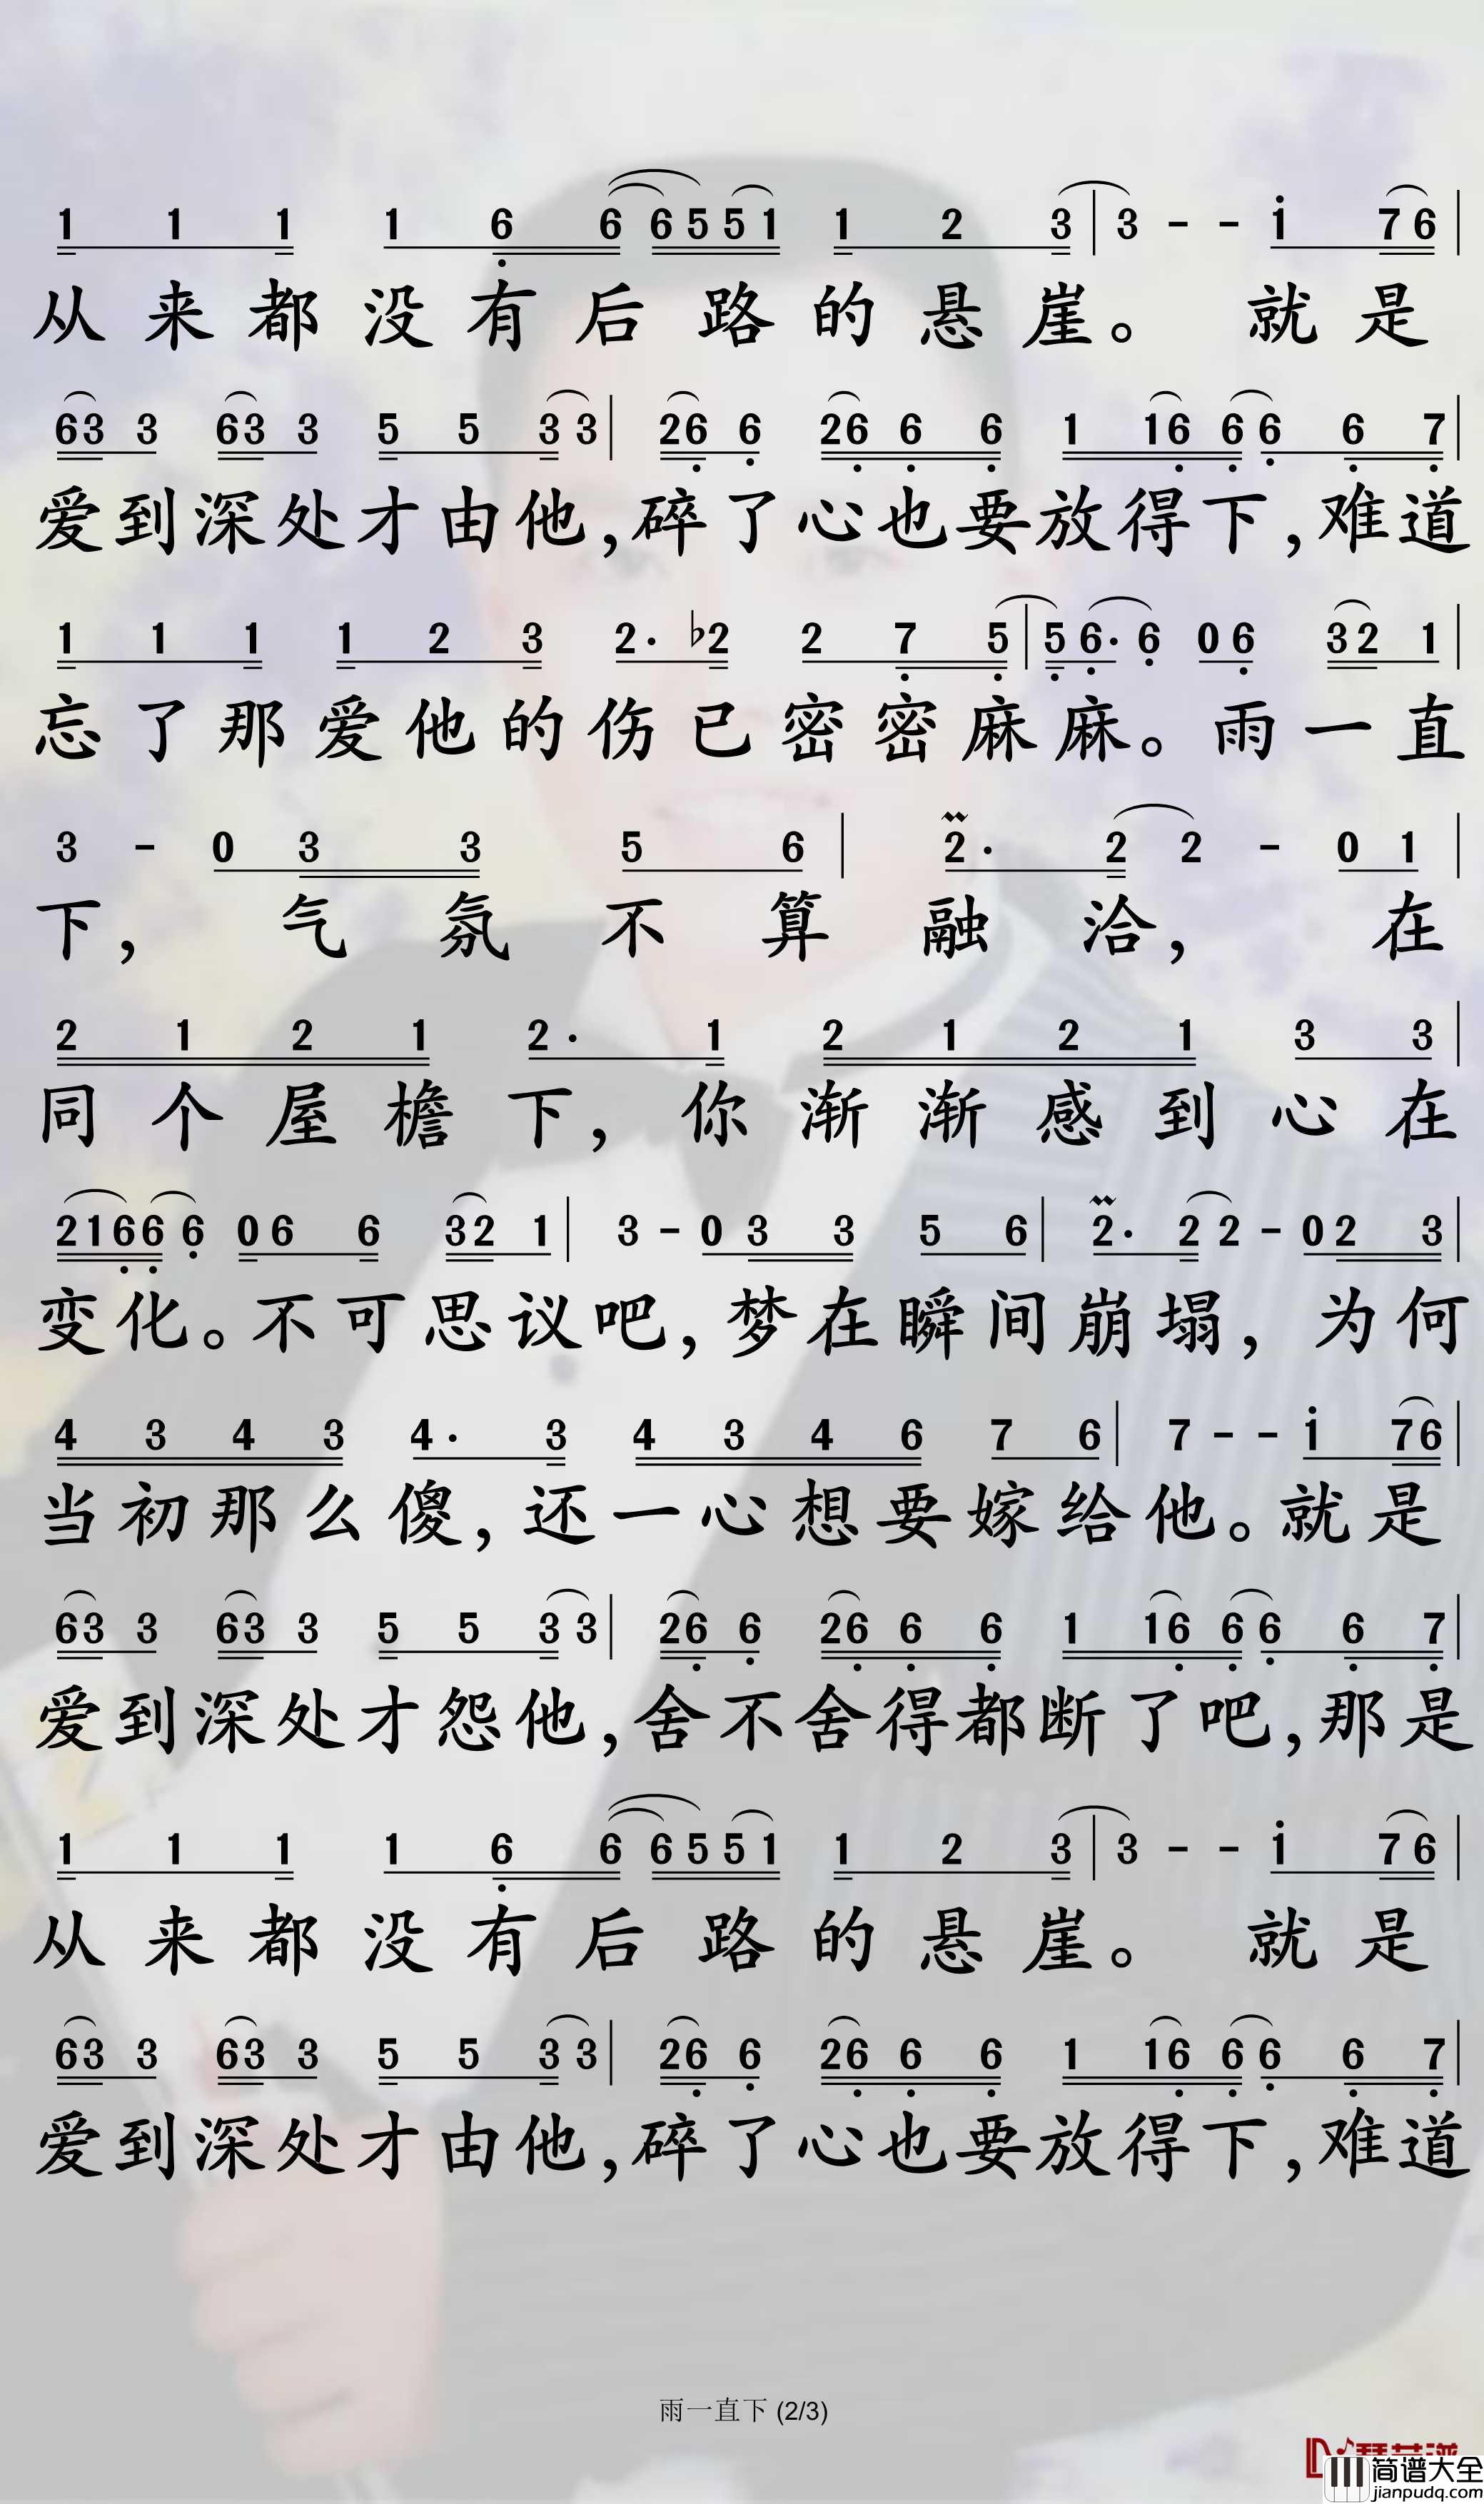 1 1 1 1 6 6 6 5 5 1 1 2 3 | 3 - - 1 7 6 |
从来都没有后路的悬崖。就是
6 3 3 6 3 3 5 5 3 3 | 2 6 6 2 6 6 6 1 1 6 6 6 6 7 |
爱到深处才由他,碎了心也要放得下,难道
1 1 1 1 2 3 2· ♭2 2 7 5 | 5 6· 6 0 6 3 2 1 |
忘了那爱他的伤已密密麻麻。雨一直
3 - 0 3 3 5 6 | 2· 2 2 - 0 1 |
下,气氛不算融洽,在
2 1 2 1 2· 1 2 1 2 1 3 3 |
同个屋檐下,你渐渐感到心在
2 1 6 6 6 0 6 6 3 2 1 | 3 - 0 3 3 5 6 | 2· 2 2 - 0 2 3 |
变化。不可思议吧,梦在瞬间崩塌,为何
4 3 4 3 4· 3 4 3 4 6 7 6 | 7 - - 1 7 6 |
当初那么傻,还一心想要嫁给他。就是
6 3 3 6 3 3 5 5 3 3 | 2 6 6 2 6 6 6 1 1 6 6 6 6 7 |
爱到深处才怨他,舍不舍得都断了吧,那是
1 1 1 1 6 6 6 5 5 1 1 2 3 | 3 - - 1 7 6 |
从来都没有后路的悬崖。就是
6 3 3 6 3 3 5 5 3 3 | 2 6 6 2 6 6 6 1 1 6 6 6 6 7 |
爱到深处才由他,碎了心也要放得下,难道
雨一直下 (2/3)
简谱大全
jianpudq.com